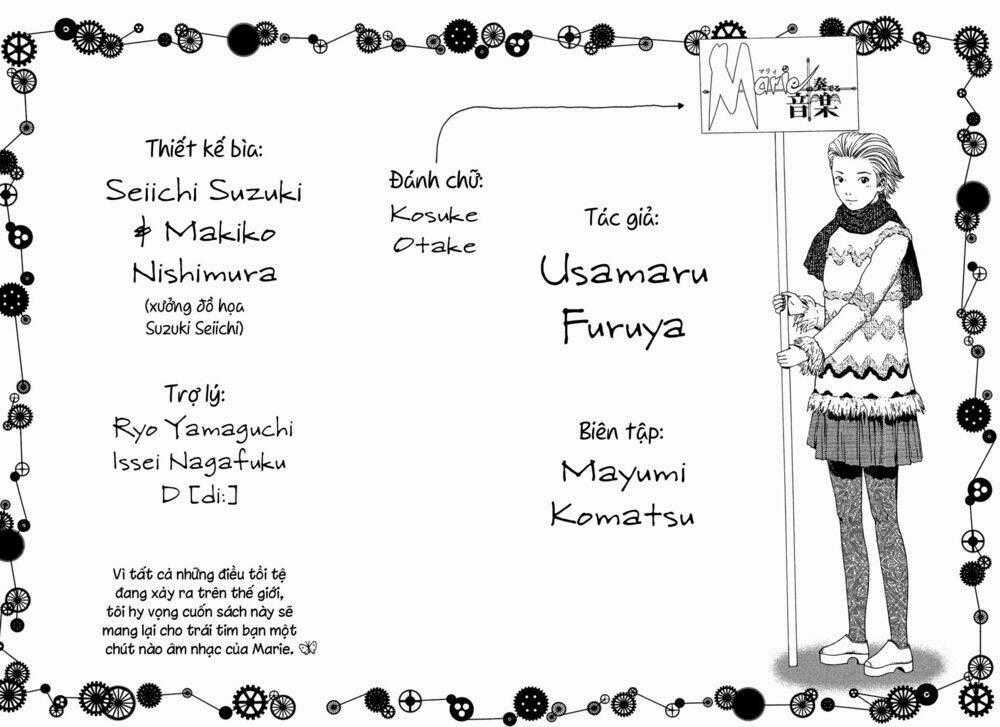 マリィ
Marieの奏でる
音楽
Thiết kế bìa:
Seiichi Suzuki
& Makiko
Nishimura
(xưởng đồ họa
Suzuki Seiichi)
Đánh chữ:
Kosuke
Otake
Tác giả:
Usamaru
Furuya
Trợ lý:
Ryo Yamaguchi
Issei Nagafuku
D [di:]
Biên tập:
Mayumi
Komatsu
Vì tất cả những điều tồi tệ
đang xảy ra trên thế giới,
tôi hy vọng cuốn sách này sẽ
mang lại cho trái tim bạn một
chút nào âm nhạc của Marie.